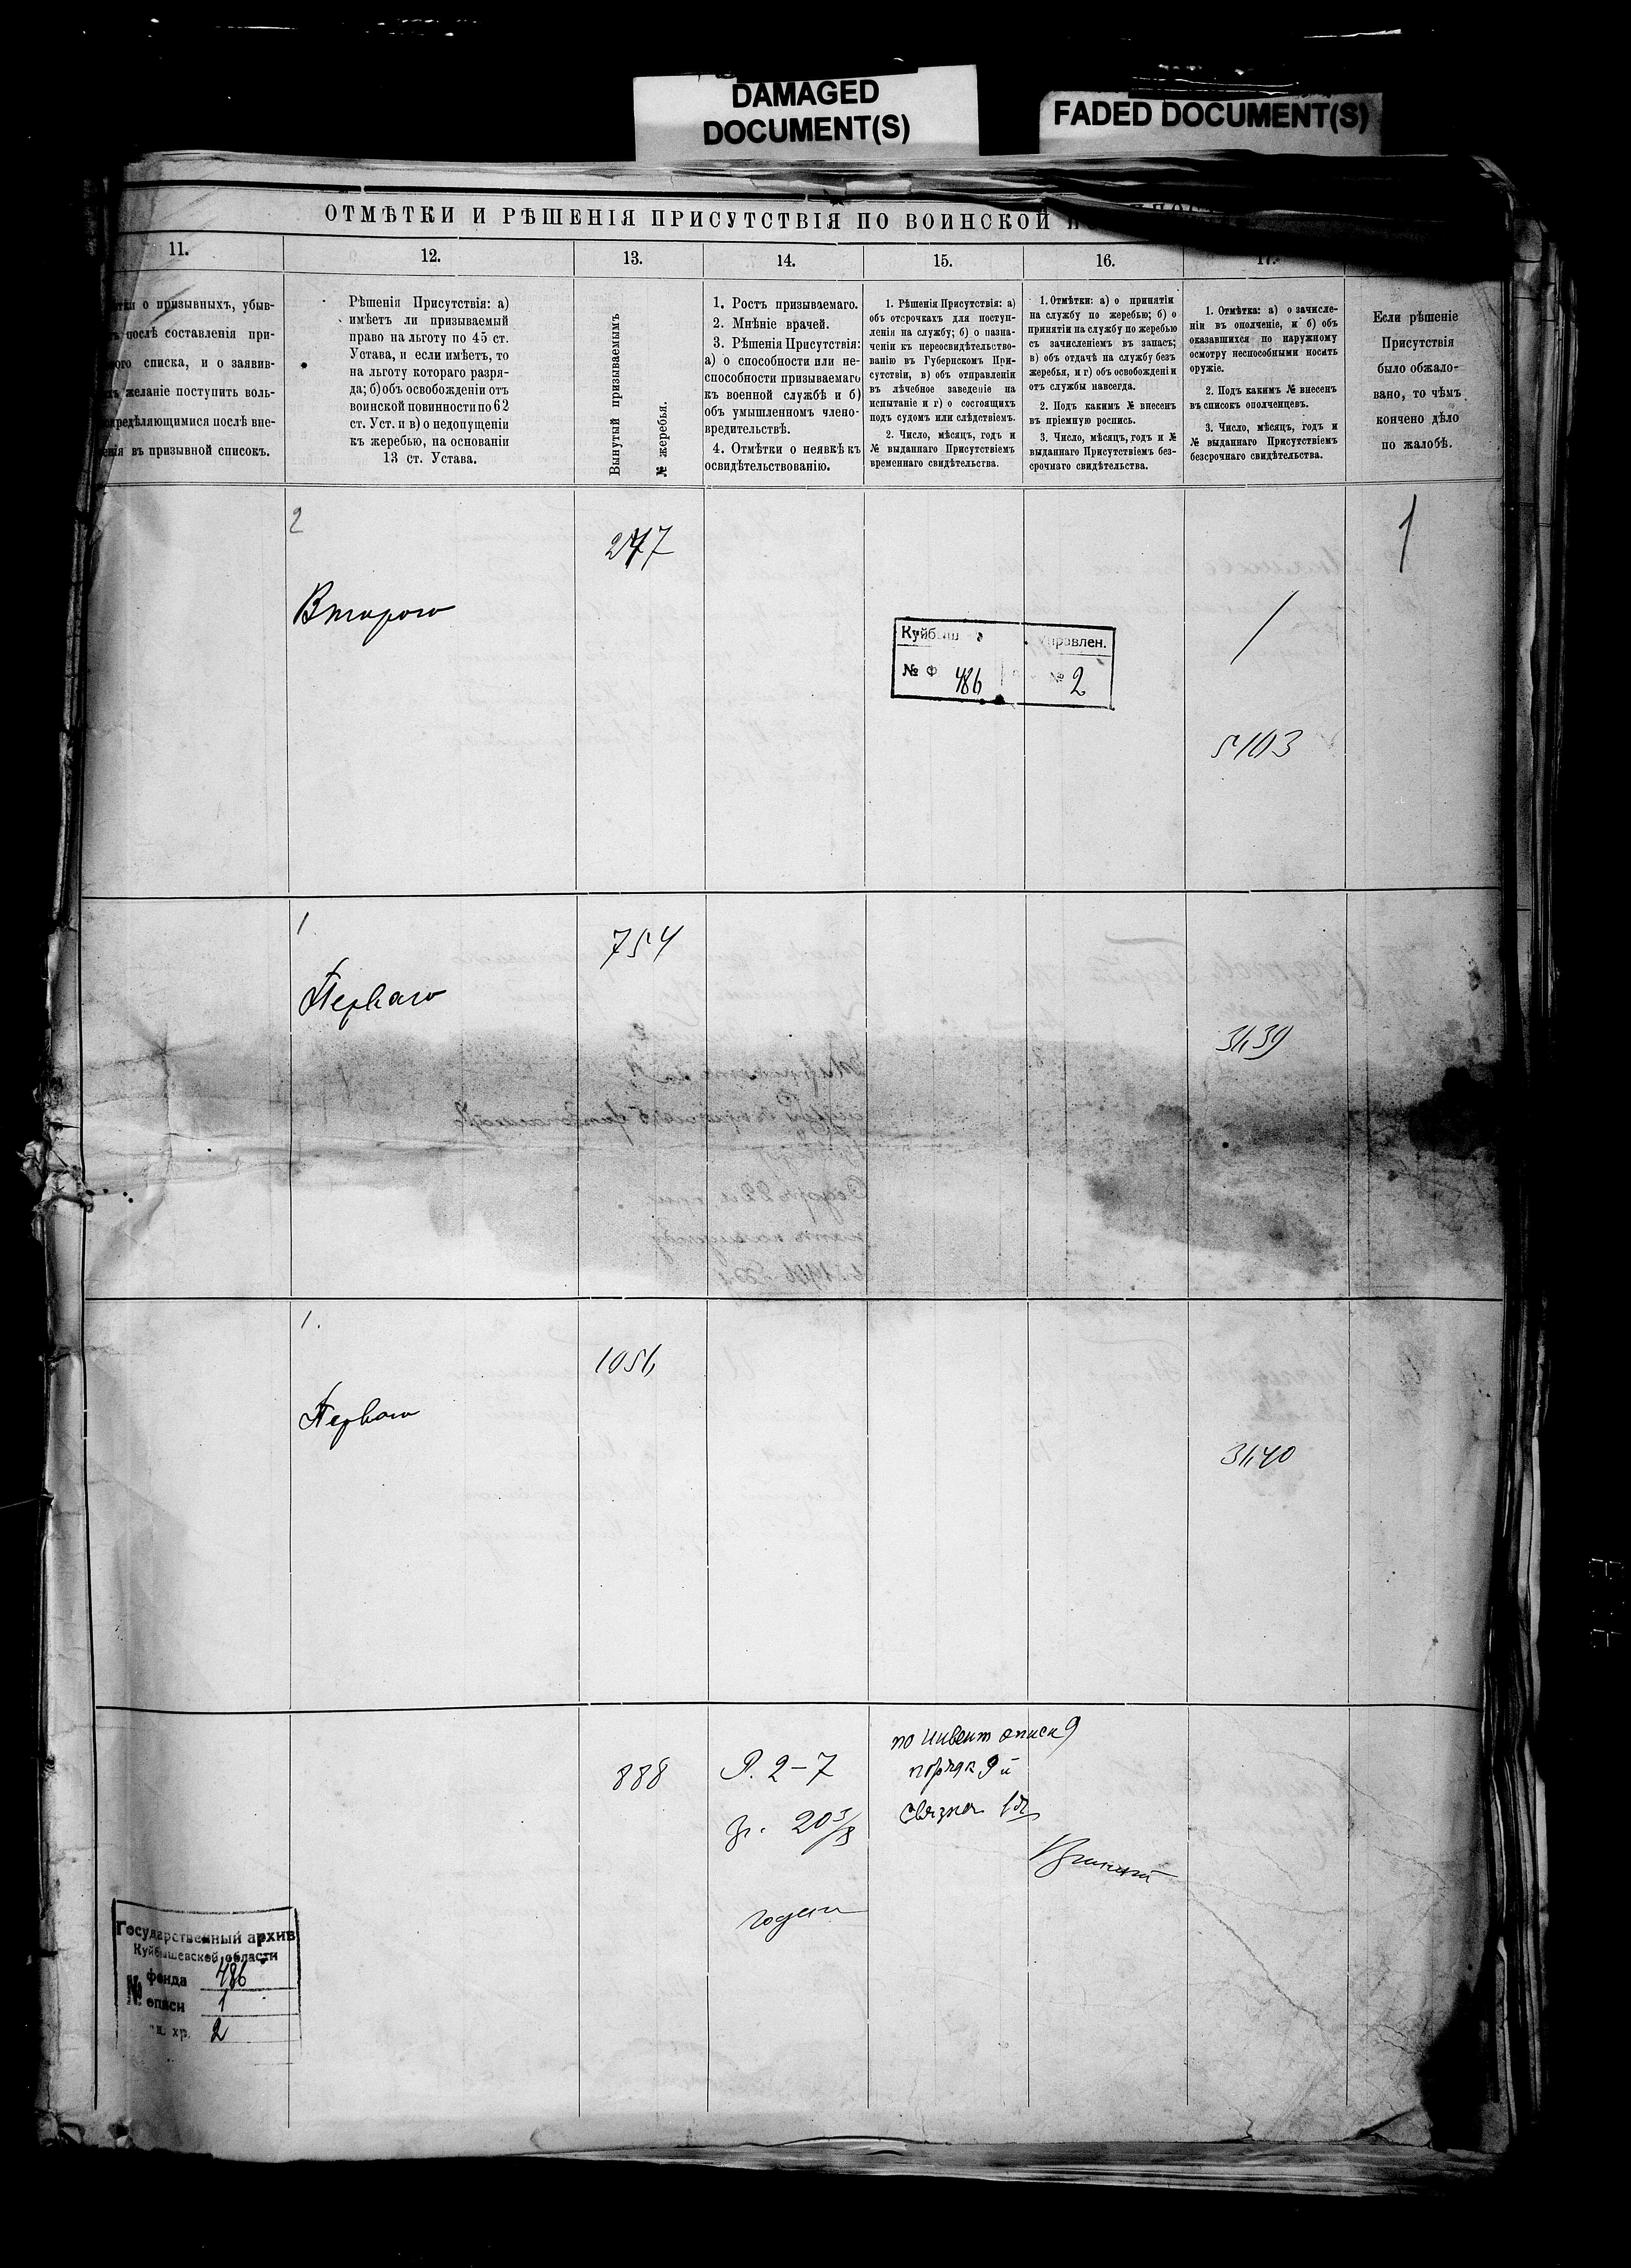 DAMAGED
DOCUMENT(S)
FADED DOCUMENT(S)
ОТМѢТКИ И РѢШЕНІЯ ПРИСУТСТВІЯ ПО ВОИНСКОЙ
11.
12.
13.
14.
15.
16.
17.
о призывныхъ, убыв-
послѣ составленія при-
списка, и о заявив-
желаніе поступить воль-
послѣ вне-
въ призывной списокъ.
Рѣшенія Присутствія: а)
имѣетъ ли призываемый
право на льготу по 45 ст.
Устава, и если имѣетъ, то
на льготу котораго разря-
да; б) объ освобожденіи отъ
воинской повинности по 62
ст. Уст. и в) о недопущеніи
къ жеребью, на основаніи
13 ст. Устава.
Вынутый призываемымъ
№ жеребья.
1. Ростъ призываемаго.
2. Мнѣніе врачей.
3. Рѣшенія Присутствія:
а) о способности или не-
способности призываемаго
къ военной службѣ и б)
объ умышленномъ члено-
вредительствѣ.
4. Отмѣтки о неявкѣ къ
освидѣтельствованію.
1. Рѣшенія Присутствія: а)
объ отсрочкахъ для поступ-
ленія на службу; б) о назна-
ченіи къ переосвидѣтельство-
ванію въ Губернскомъ При-
сутствіи, в) объ отправленіи
въ лѣчебное заведеніе на
испытаніе и г) о состоящихъ
подъ судомъ или слѣдствіемъ.
2. Число, мѣсяцъ, годъ и
№ выданнаго Присутствіемъ
временнаго свидѣтельства.
1. Отмѣтки: а) о принятіи
на службу по жеребью; б) о
принятіи на службу по жеребью
съ зачисленіемъ въ запасъ;
в) объ отдачѣ на службу безъ
жеребья, и г) объ освобожденіи
отъ службы навсегда.
2. Подъ какимъ № внесенъ
въ пріемную роспись.
3. Число, мѣсяцъ, годъ и №
выданнаго Присутствіемъ без-
срочнаго свидѣтельства.
1. Отмѣтка: а) о зачисле-
ніи въ ополченіе, и б) объ
оказавшихся по наружному
осмотру неспособными носить
оружіе.
2. Подъ какимъ № внесенъ
въ списокъ ополченцевъ.
3. Число, мѣсяцъ, годъ и
№ выданнаго Присутствіемъ
безсрочнаго свидѣтельства.
Если рѣшеніе
Присутствія
было обжало-
вано, то чѣмъ
кончено дѣло
по жалобѣ.
2
247
1
Второго
Куйбыш
управлен.
№ Ф 486
№ 2
5403
1
754
Перваго
3439
1.
1056
Перваго
3440
888
Р. 2-7
гр. 20 3/8
годенъ
по инвент описи 9
порядк 9й
Связка
Государственный архив
Куйбышевской области
№ фонда 486
описи 1
хр. 2